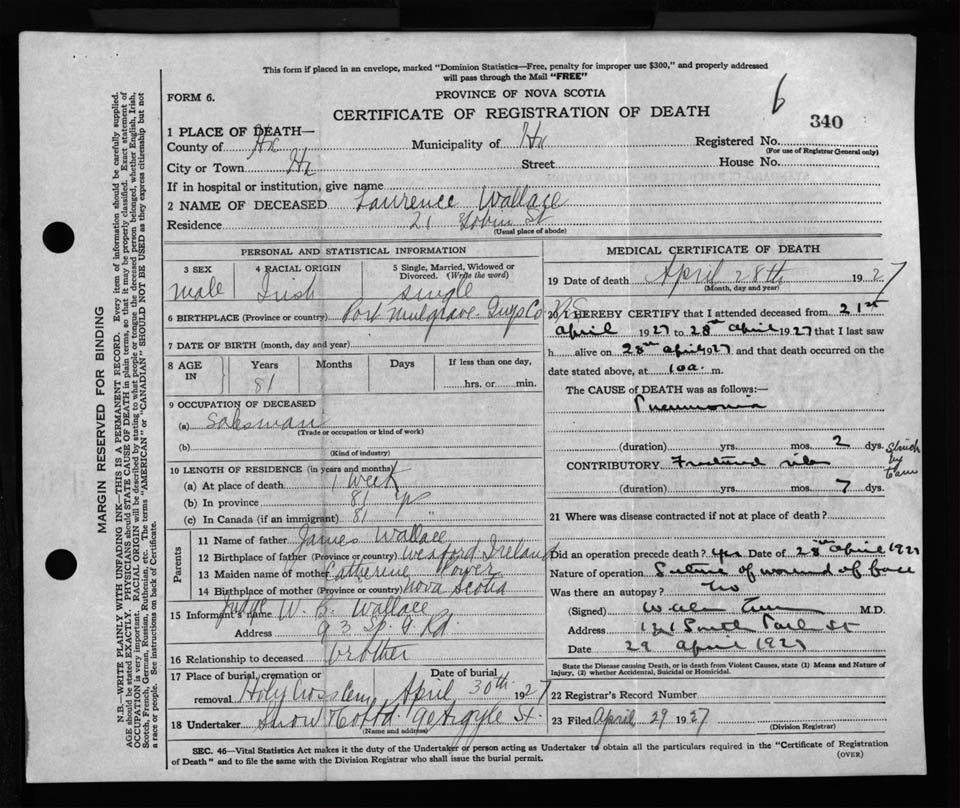 This form if placed in an envelope, marked "Dominion Statistics—Free, penalty for improper use $300," and properly addressed
will pass through the Mail "FREE"
FORM 6.
PROVINCE OF NOVA SCOTIA
6
CERTIFICATE OF REGISTRATION OF DEATH
340
1 PLACE OF DEATH—
County of Hx Municipality of Hx Registered No.
(For use of Registrar General only)
City or Town Hx Street House No.
If in hospital or institution, give name
2 NAME OF DECEASED Lawrence Wallace
Residence 21 Tobin St
(Usual place of abode)
PERSONAL AND STATISTICAL INFORMATION
3 SEX
male
4 RACIAL ORIGIN
Irish
5 Single, Married, Widowed or
Divorced. (Write the word)
single
6 BIRTHPLACE (Province or country) Port Mulgrave Guys Co N.S.
7 DATE OF BIRTH (month, day and year)
8 AGE
IN
Years
81
Months
Days
If less than one day,
hrs. or min.
9 OCCUPATION OF DECEASED
(a) Salesman
(Trade or occupation or kind of work)
(b)
(Kind of industry)
10 LENGTH OF RESIDENCE (in years and months)
(a) At place of death 1 week
(b) In province 81 yr
(c) In Canada (if an immigrant) 81 "
Parents
11 Name of father James Wallace
12 Birthplace of father (Province or country) Wexford Ireland
13 Maiden name of mother Catherine Power
14 Birthplace of mother (Province or country) Nova Scotia
15 Informant's name Judge W. B. Wallace
Address 93 Sp. G. Rd.
16 Relationship to deceased brother
17 Place of burial, cremation or Date of burial
removal Holy Cross Cem April 30th 1927
18 Undertaker Snow & Co Ltd 90 Argyle St.
(Name and address)
MEDICAL CERTIFICATE OF DEATH
19 Date of death April 28th 1927
(Month, day and year)
20 I HEREBY CERTIFY that I attended deceased from 21st
April 1927 to 28th April 1927 that I last saw
h alive on 28th April 1927 and that death occurred on
date stated above, at 10a. m.
The CAUSE of DEATH was as follows:—
Pneumonia
(duration) yrs. mos. 2 dys.
CONTRIBUTORY Fractured ribs
Struck
by
team
(duration) yrs. mos. 7 dys.
21 Where was disease contracted if not at place of death?
Did an operation precede death? yes Date of 28th April 1927
Nature of operation Suture of wound of face
Was there an autopsy? No
(Signed) M.D.
Address 121 South Park St
Date 29 April 1927
State the Disease causing Death, or in death from Violent Causes, state (1) Means and Nature of
Injury, (2) whether Accidental, Suicidal or Homicidal.
22 Registrar's Record Number
23 Filed April 29 1927
(Division Registrar)
SEC. 46—Vital Statistics Act makes it the duty of the Undertaker or person acting as Undertaker to obtain all the particulars required in the "Certificate of Registration
of Death" and to file the same with the Division Registrar who shall issue the burial permit.
(OVER)
MARGIN RESERVED FOR BINDING
N.B.—WRITE PLAINLY, WITH UNFADING INK—THIS IS A PERMANENT RECORD. Every item of information should be carefully supplied.
AGE should be stated EXACTLY. PHYSICIANS should STATE CAUSE OF DEATH in plain terms, so that it may be properly classified. Exact statement of
OCCUPATION is very important. RACIAL ORIGIN will be described by stating to what people or tongue the deceased person belonged, whether English, Irish,
Scotch, French, German, Russian, Ruthenian, etc. The terms "AMERICAN" or "CANADIAN" SHOULD NOT BE USED as they express citizenship but not
a race or people. See instructions on back of Certificate.